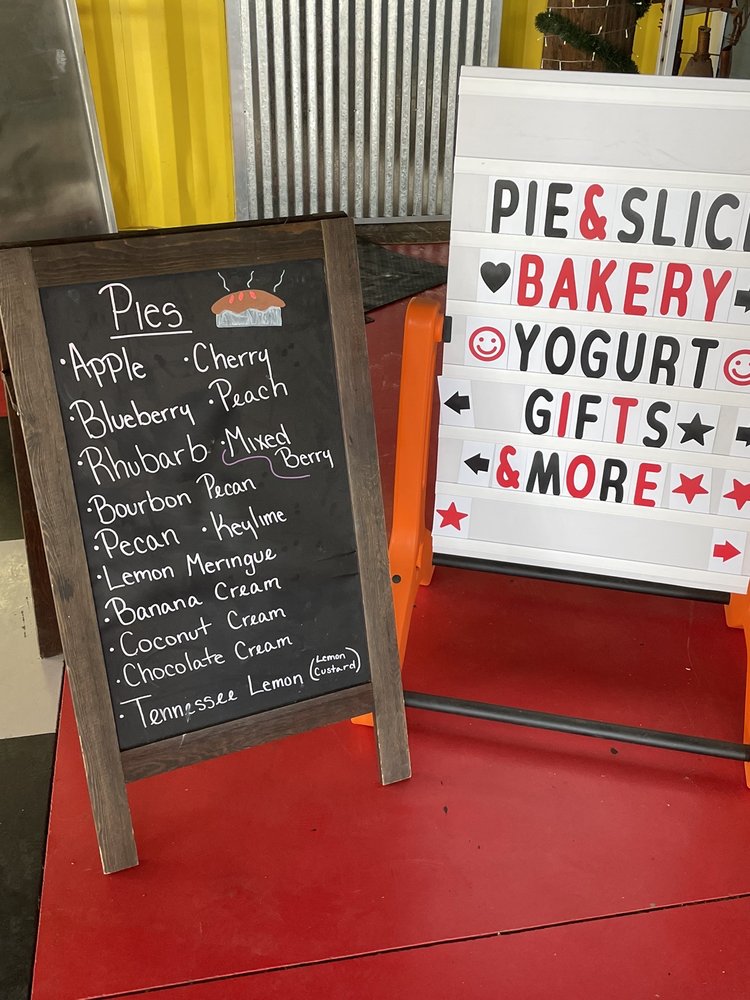 Pies
·Apple ·Cherry
·Blueberry ·Peach
·Rhubarb ·Mixed Berry
·Bourbon Pecan
·Pecan ·Keylime
·Lemon Meringue
·Banana Cream
·Coconut Cream
·Chocolate Cream
·Tennessee Lemon (Lemon Custard)
PIE & SLIC
BAKERY
YOGURT
GIFTS
& MORE